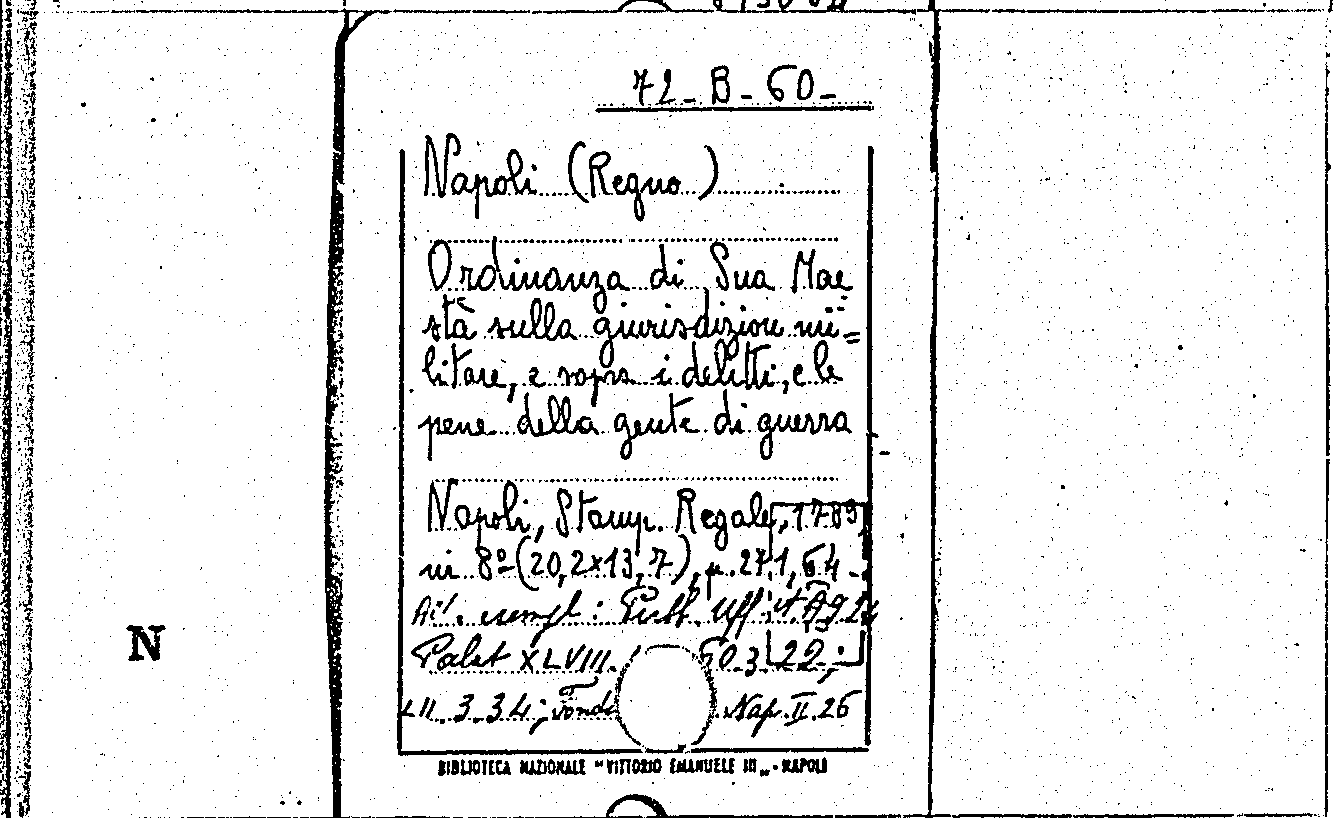 72-B-60-
Napoli (Regno)
Ordinanza di Sua Mae
stà sulla giurisdizion mi=
litare, e sopra i delitti, e le
pene della gente di guerra
Napoli, Stamp. Regale, 1789
in 8º (20,2×13,7), p. 271, 64
Alt. esempl: Pubb. Uff.
Palat XLVIII. 60.3 22;
LII. 3.34; Fondo Nap. II 26
N
BIBLIOTECA NAZIONALE "VITTORIO EMANUELE III„ - NAPOLI